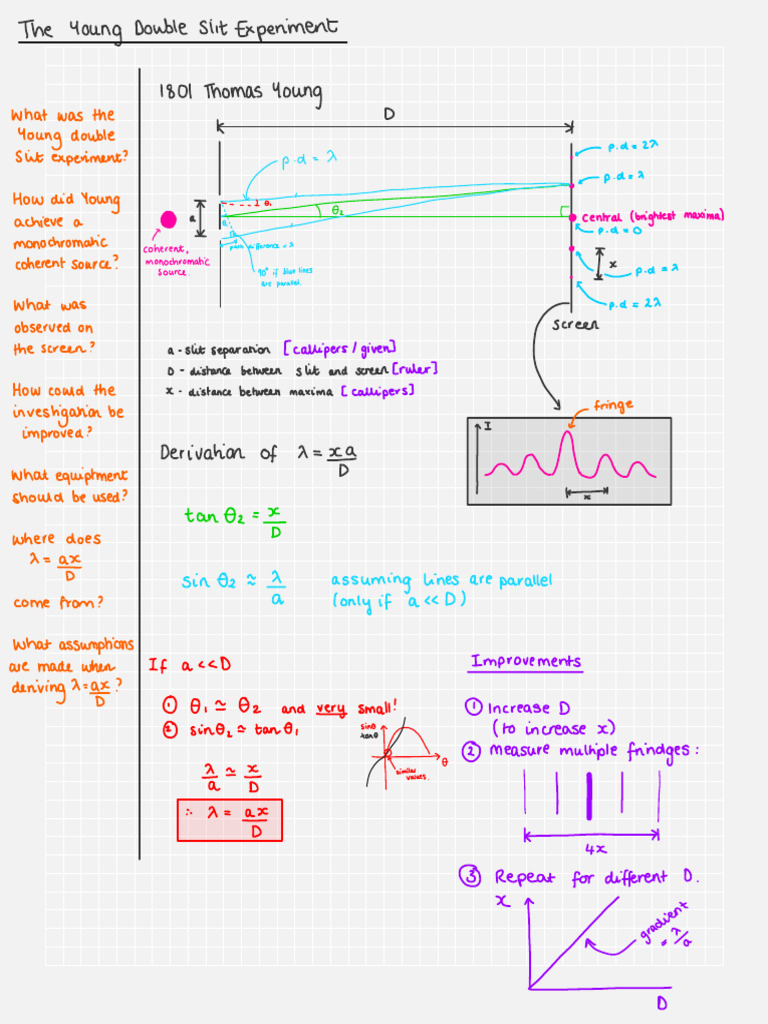 The Young Double Slit Experiment
What was the
Young double
Slit experiment?
How did Young
achieve a
monochromatic
coherent source?
What was
observed on
the screen?
How could the
investigation be
improved?
What equiptment
should be used?
Where does
λ = ax/D
come from?
What assumptions
are made when
deriving λ = ax/D ?
1801 Thomas Young
D
p.d = λ
p.d = 2λ
p.d = λ
θ₁
θ₂
a
central (brightest maxima)
p.d = 0
coherent,
monochromatic
source.
path difference = λ
90° if blue lines
are parallel.
x
p.d = λ
p.d = 2λ
screen
a - slit separation [callipers / given]
D - distance between slit and screen [ruler]
x - distance between maxima [callipers]
fringe
I
x
Derivation of λ = xa/D
tan θ₂ = x/D
sin θ₂ ≈ λ/a assuming lines are parallel
(only if a << D)
If a << D
① θ₁ ≃ θ₂ and very small!
② sinθ₂ ≃ tanθ₁
sinθ
tanθ
θ
similar
values.
λ/a ≃ x/D
∴ λ = ax/D
Improvements
① Increase D
(to increase x)
② measure multiple frindges :
4x
③ Repeat for different D.
x
gradient
= λ/a
D